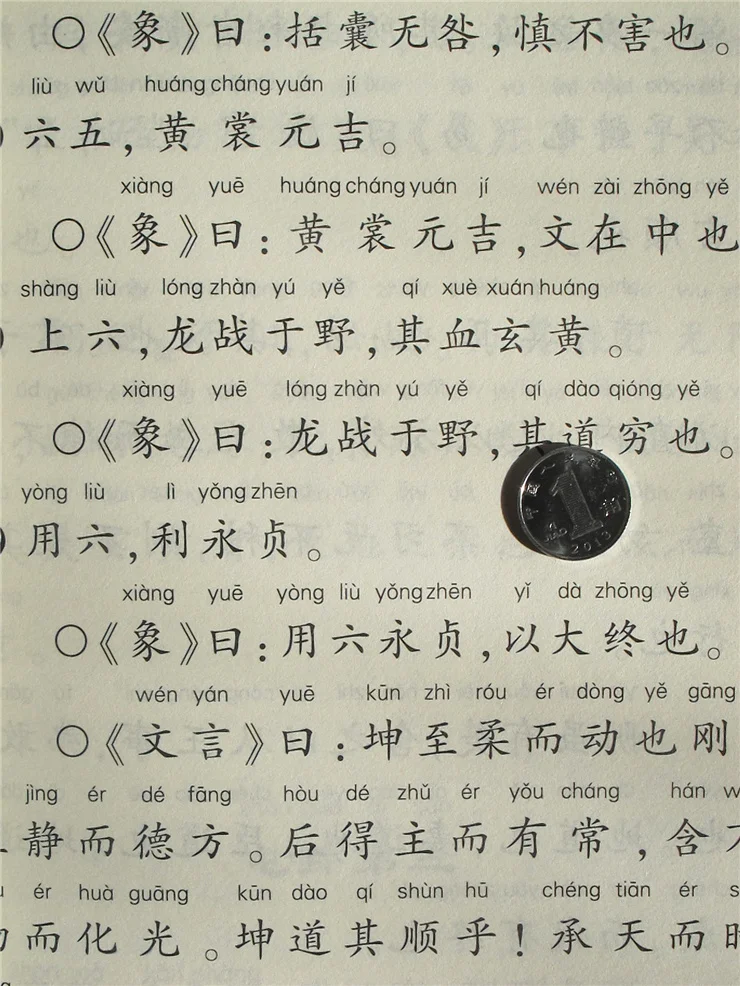 ○《象》曰：括囊无咎，慎不害也。
liù wǔ huáng cháng yuán jí
六五，黄裳元吉。
xiàng yuē huáng cháng yuán jí wén zài zhōng yě
○《象》曰：黄裳元吉，文在中也
shàng liù lóng zhàn yú yě qí xuè xuán huáng
上六，龙战于野，其血玄黄。
xiàng yuē lóng zhàn yú yě qí dào qióng yě
○《象》曰：龙战于野，其道穷也。
1
2013
yòng liù lì yǒng zhēn
用六，利永贞。
xiàng yuē yòng liù yǒng zhēn yǐ dà zhōng yě
○《象》曰：用六永贞，以大终也。
wén yán yuē kūn zhì róu ér dòng yě gāng
○《文言》曰：坤至柔而动也刚
jìng ér dé fāng hòu dé zhǔ ér yǒu cháng hán
静而德方。后得主而有常，含
ér huà guāng kūn dào qí shùn hū chéng tiān ér
而化光。坤道其顺乎！承天而